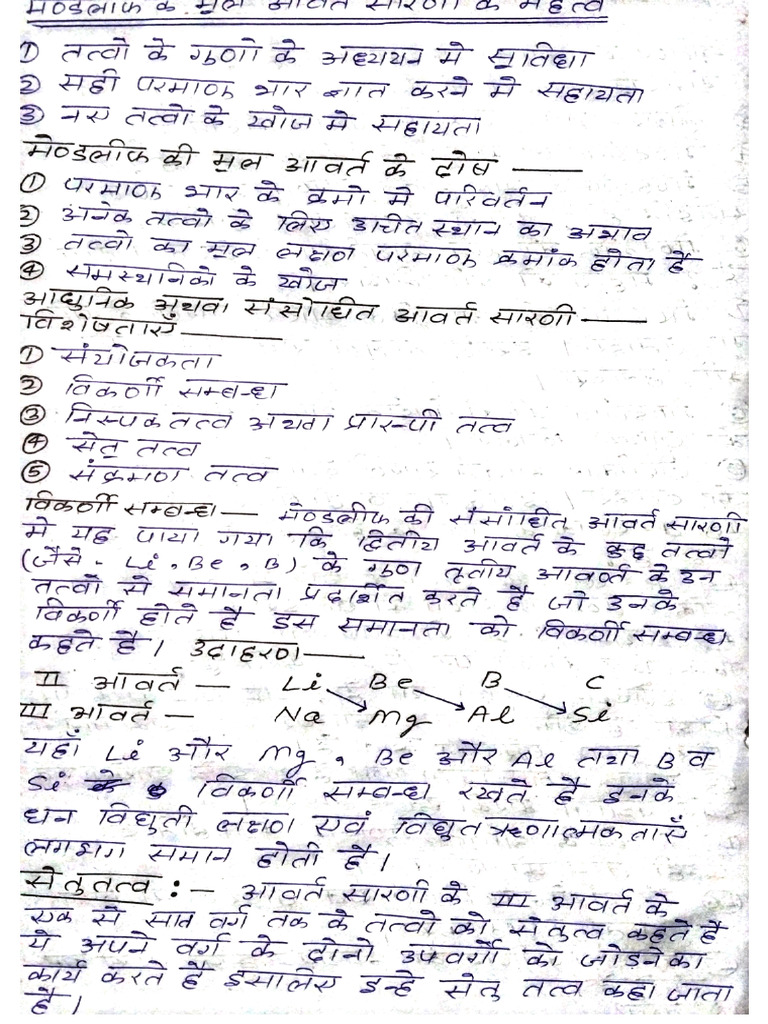 मेण्डलीफ के मूल आवर्त सारणी के महत्व
① तत्वो के गुणो के अध्ययन मे सुविधा
② सही परमाणु भार ज्ञात करने मे सहायता
③ नए तत्वो के खोज मे सहायता
मेण्डलीफ की मूल आवर्त के दोष ——
① परमाणु भार के क्रमो मे परिवर्तन
② अनेक तत्वो के लिए उचित स्थान का अभाव
③ तत्वो का मूल लक्षण परमाणु क्रमांक होता है
④ समस्थानिको के खोज
आधुनिक अथवा संसोधित आवर्त सारणी ——
विशेषताएँ ——
① संयोजकता
② विकर्ण सम्बन्ध
③ निरूपक तत्व अथवा प्रारूपी तत्व
④ सेतु तत्व
⑤ संक्रमण तत्व
विकर्ण सम्बन्ध — मेण्डलीफ की संसोधित आवर्त सारणी
मे यह पाया गया कि द्वितीय आवर्त के कुछ तत्वो
(जैसे - Li, Be, B) के गुण तृतीय आवर्त के उन
तत्वो से समानता प्रदर्शित करते है जो उनके
विकर्ण होते है इस समानता को विकर्ण सम्बन्ध
कहते है। उदाहरण ——
II आवर्त — Li Be B C
III आवर्त — Na Mg Al Si
यहाँ Li और Mg, Be और Al तथा B व
Si विकर्ण सम्बन्ध रखते है इनके
धन विधुती लक्षण एवं विधुत ऋणात्मकताएँ
लगभग समान होती है।
सेतुतत्व :- आवर्त सारणी के III आवर्त के
एक से सात वर्ग तक के तत्वो को सेतुत्व कहते है
ये अपने वर्ग के दोनो उपवर्गो को जोड़ने का
कार्य करते है इसलिए इन्हे सेतु तत्व कहा जाता
है।